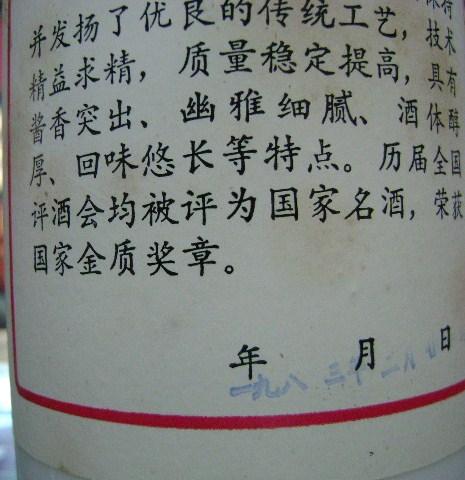 并发扬了优良的传统工艺，
精益求精，质量稳定提高，具有
酱香突出、幽雅细腻、酒体醇
厚、回味悠长等特点。历届全国
评酒会均被评为国家名酒，荣获
国家金质奖章。
年 月 日
一九八三年二月